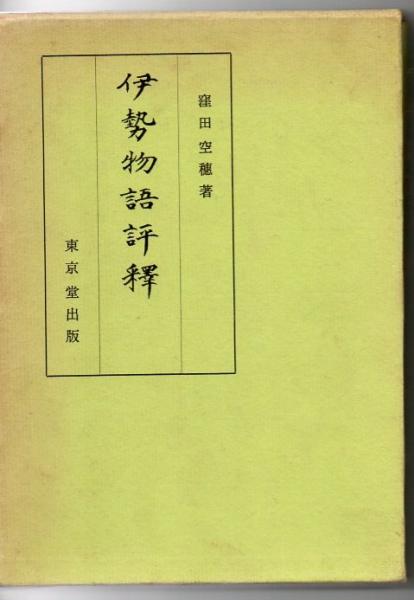 窪田空穗著
伊勢物語評釋
東京堂出版